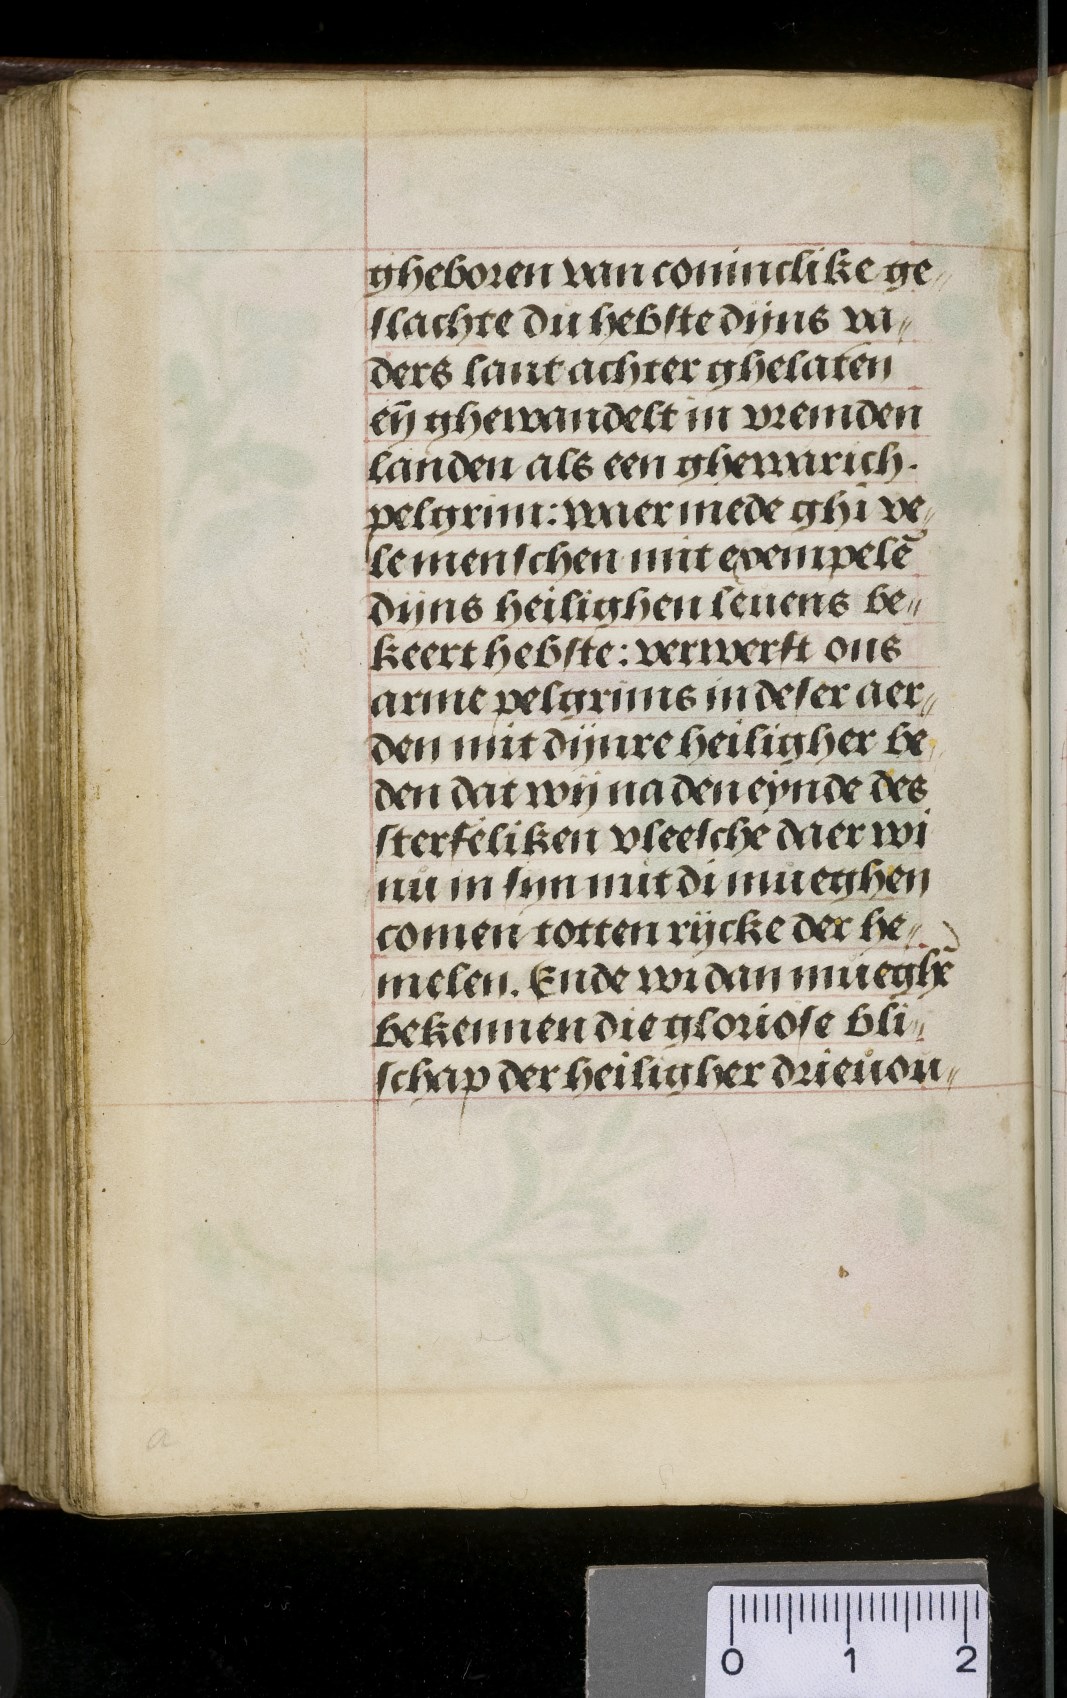 gheboren van coninclike ge〃
slachte du hebste dijns va〃
ders lant achter ghelaten
eñ ghewandelt in vremden
landen als een ghewarich.
pelgrim: waer mede ghi ve〃
le menschen mit exempelē
dijns heilighen leuens be〃
keert hebste: verwerft ons
arme pelgrims in deser aer〃
den mit dijnre heiligher be〃
den dat wij na den eynde des
sterfeliken vleesche daer wi
nu in syn mit di mueghen
comen totten rijcke der he〃
melen. Ende wi dan mueghē
bekennen die gloriose bli〃
schap der heiligher drieuou〃
a
0 1 2